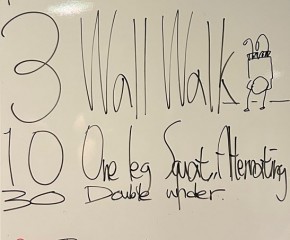 3 Wall Walk
10 One leg Squat, Alternating
30 Double under.